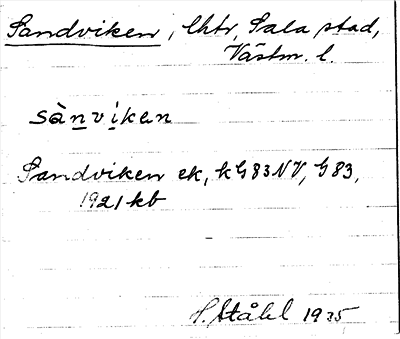 Sandviken, lhtr, Sala stad,
Västm. l.
sànviken
Sandviken ek, kG83NV, G83,
1921 kb
H. Ståhl 1935